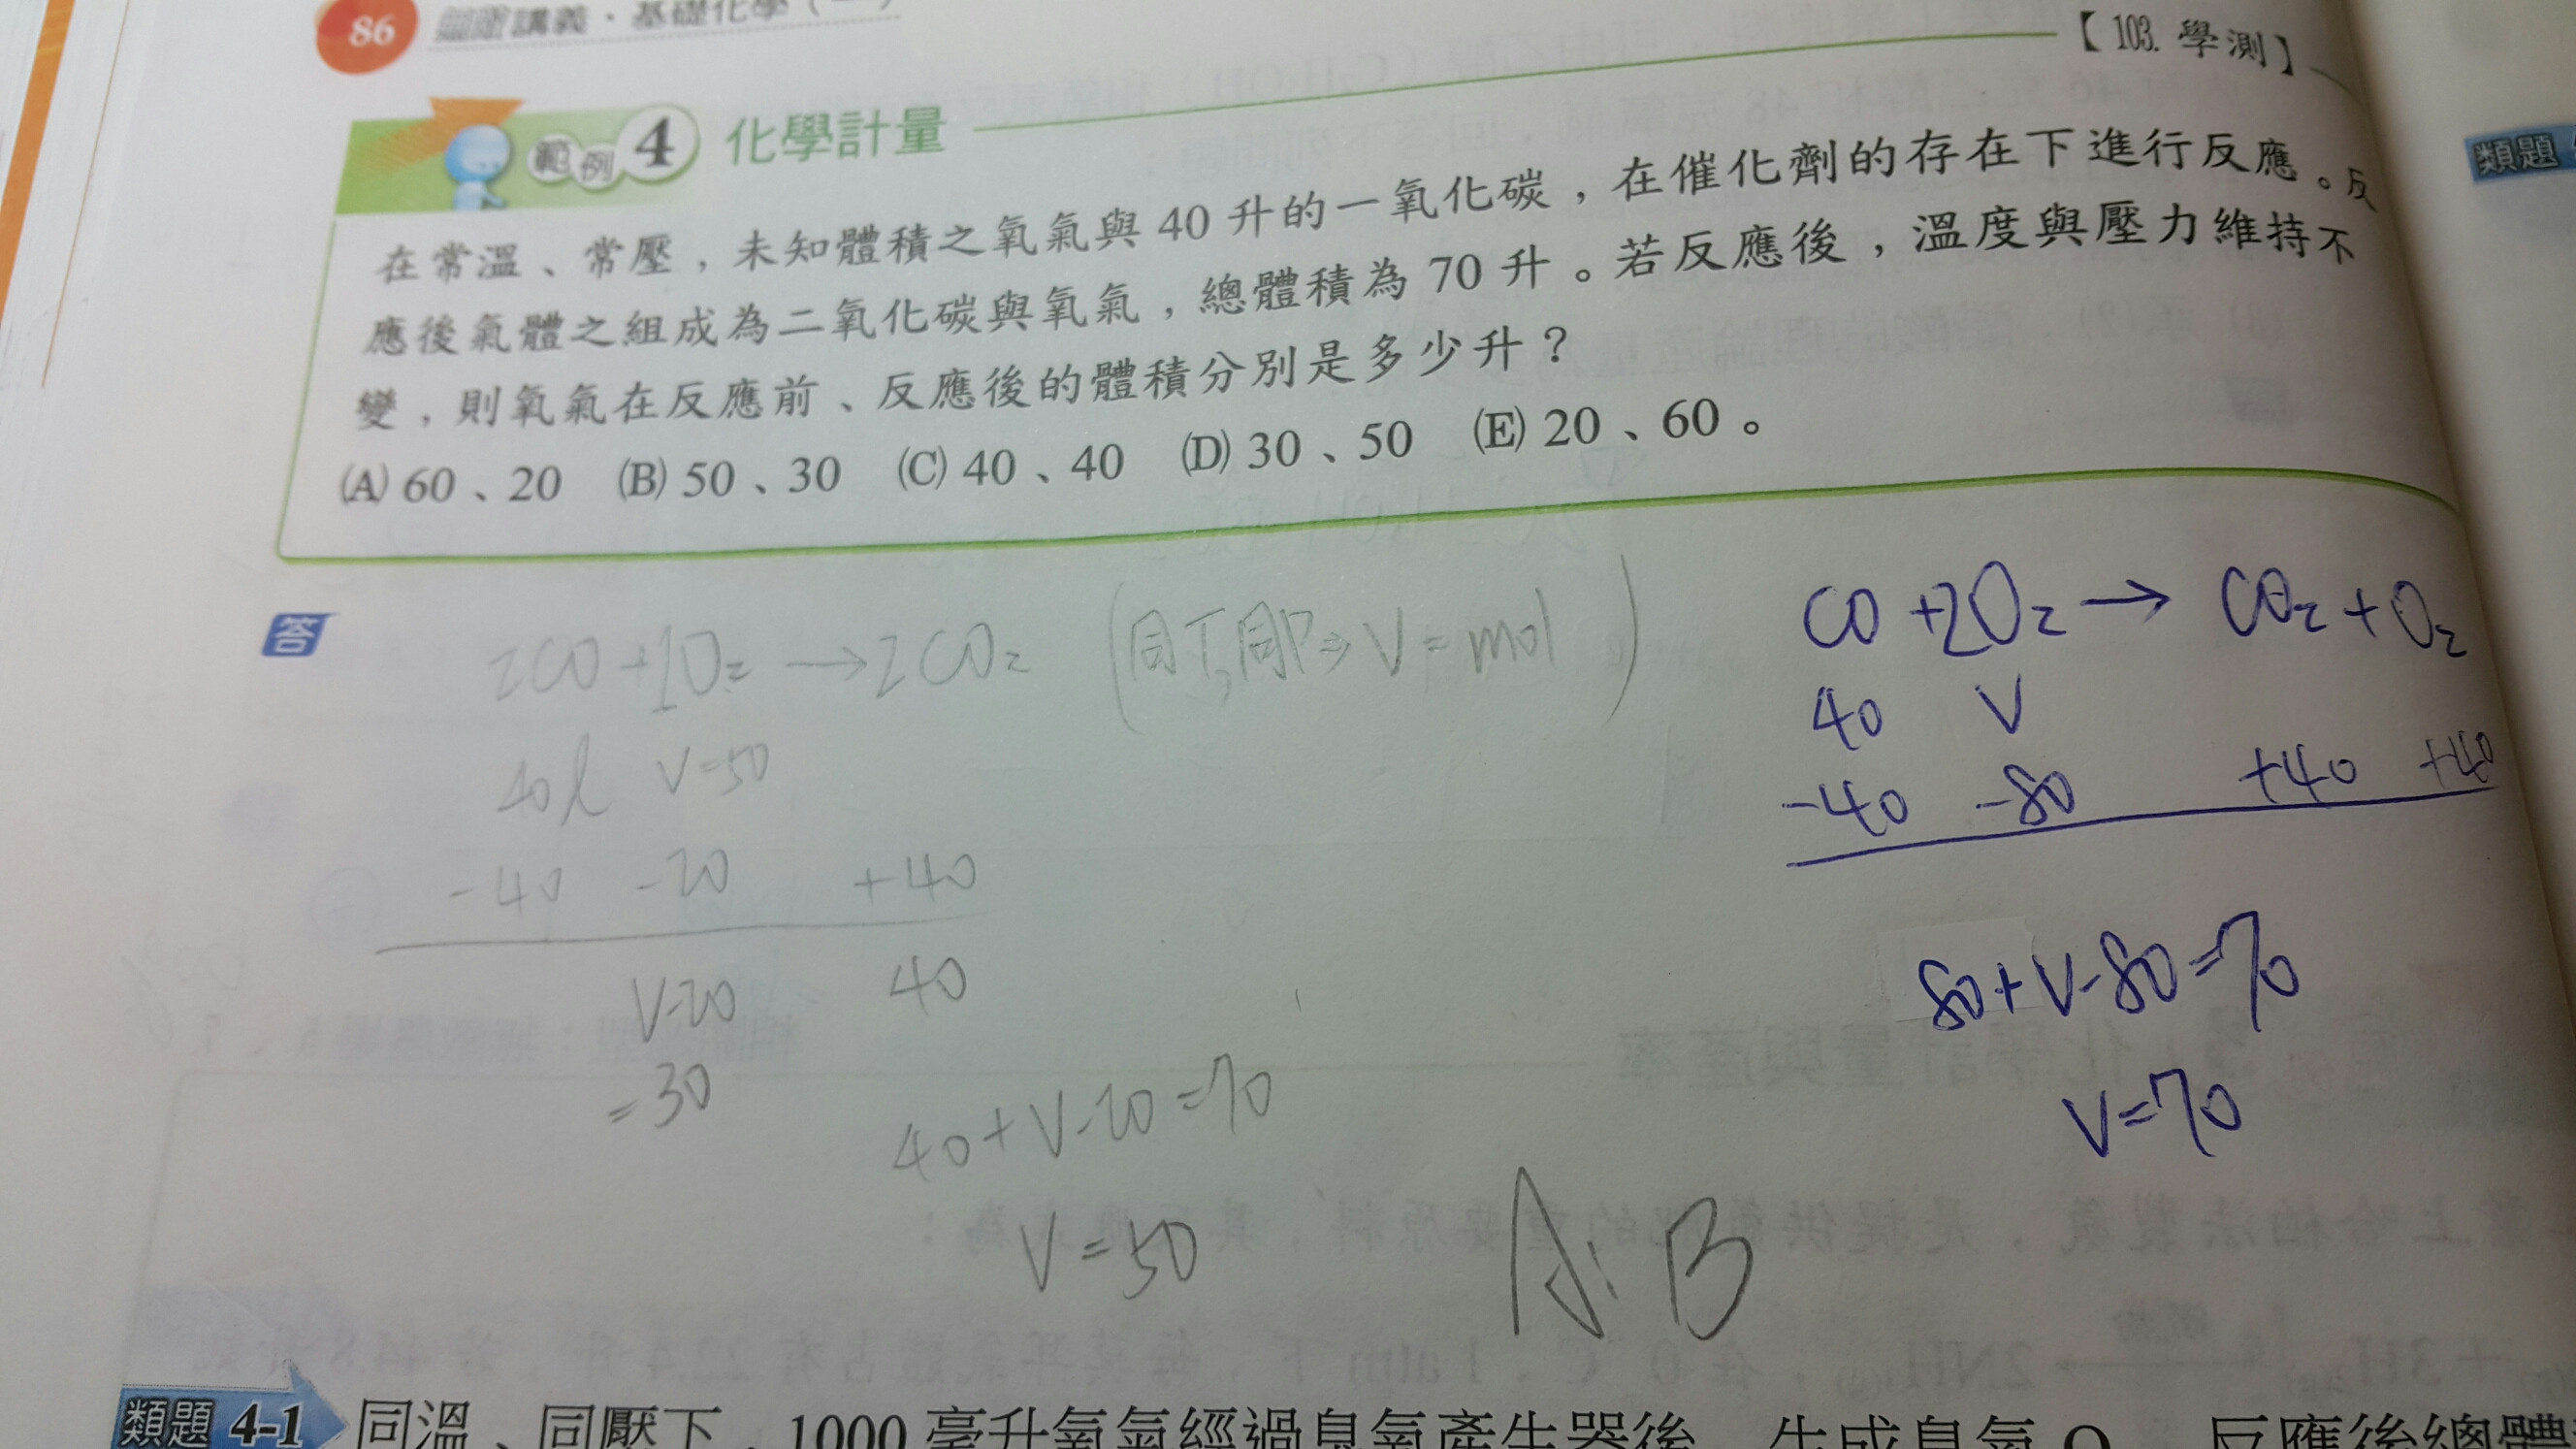 86 無敵講義·基礎化學(一)
【103. 學測】
範例 4 化學計量
在常溫、常壓，未知體積之氧氣與 40 升的一氧化碳，在催化劑的存在下進行反應。反
應後氣體之組成為二氧化碳與氧氣，總體積為 70 升。若反應後，溫度與壓力維持不
變，則氧氣在反應前、反應後的體積分別是多少升？
(A) 60、20 (B) 50、30 (C) 40、40 (D) 30、50 (E) 20、60。
類題
答
2CO + 1O₂ → 2CO₂ (同T,同P⇒V=mol)
40l V=50
-40 -20 +40
V-20 40
=30
40+V-20=70
V=50
A: B
CO +2O₂ → CO₂ + O₂
40 V
-40 -80 +40 +40
80+V-80=70
V=70
類題 4-1 同溫、同壓下，1000 毫升氧氣經過臭氧產生器後，生成臭氧 O 反應後總體